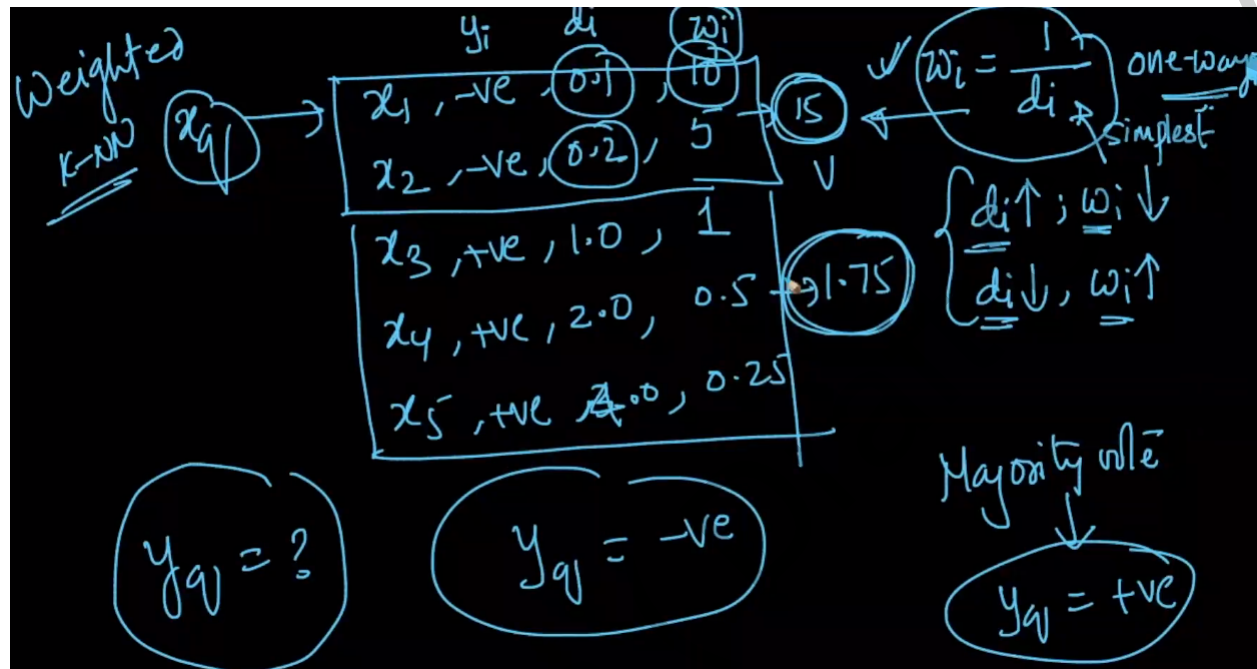 Weighted
K-NN
xq
yi di wi
x1, -ve, 0.1, 10
x2, -ve, 0.2, 5 → 15
x3, +ve, 1.0, 1
x4, +ve, 2.0, 0.5 → 1.75
x5, +ve, 4.0, 0.25
wi = 1/di
one-way
simplest
di↑ ; wi↓
di↓, wi↑
yq = ?
yq = -ve
Majority vote
yq = +ve